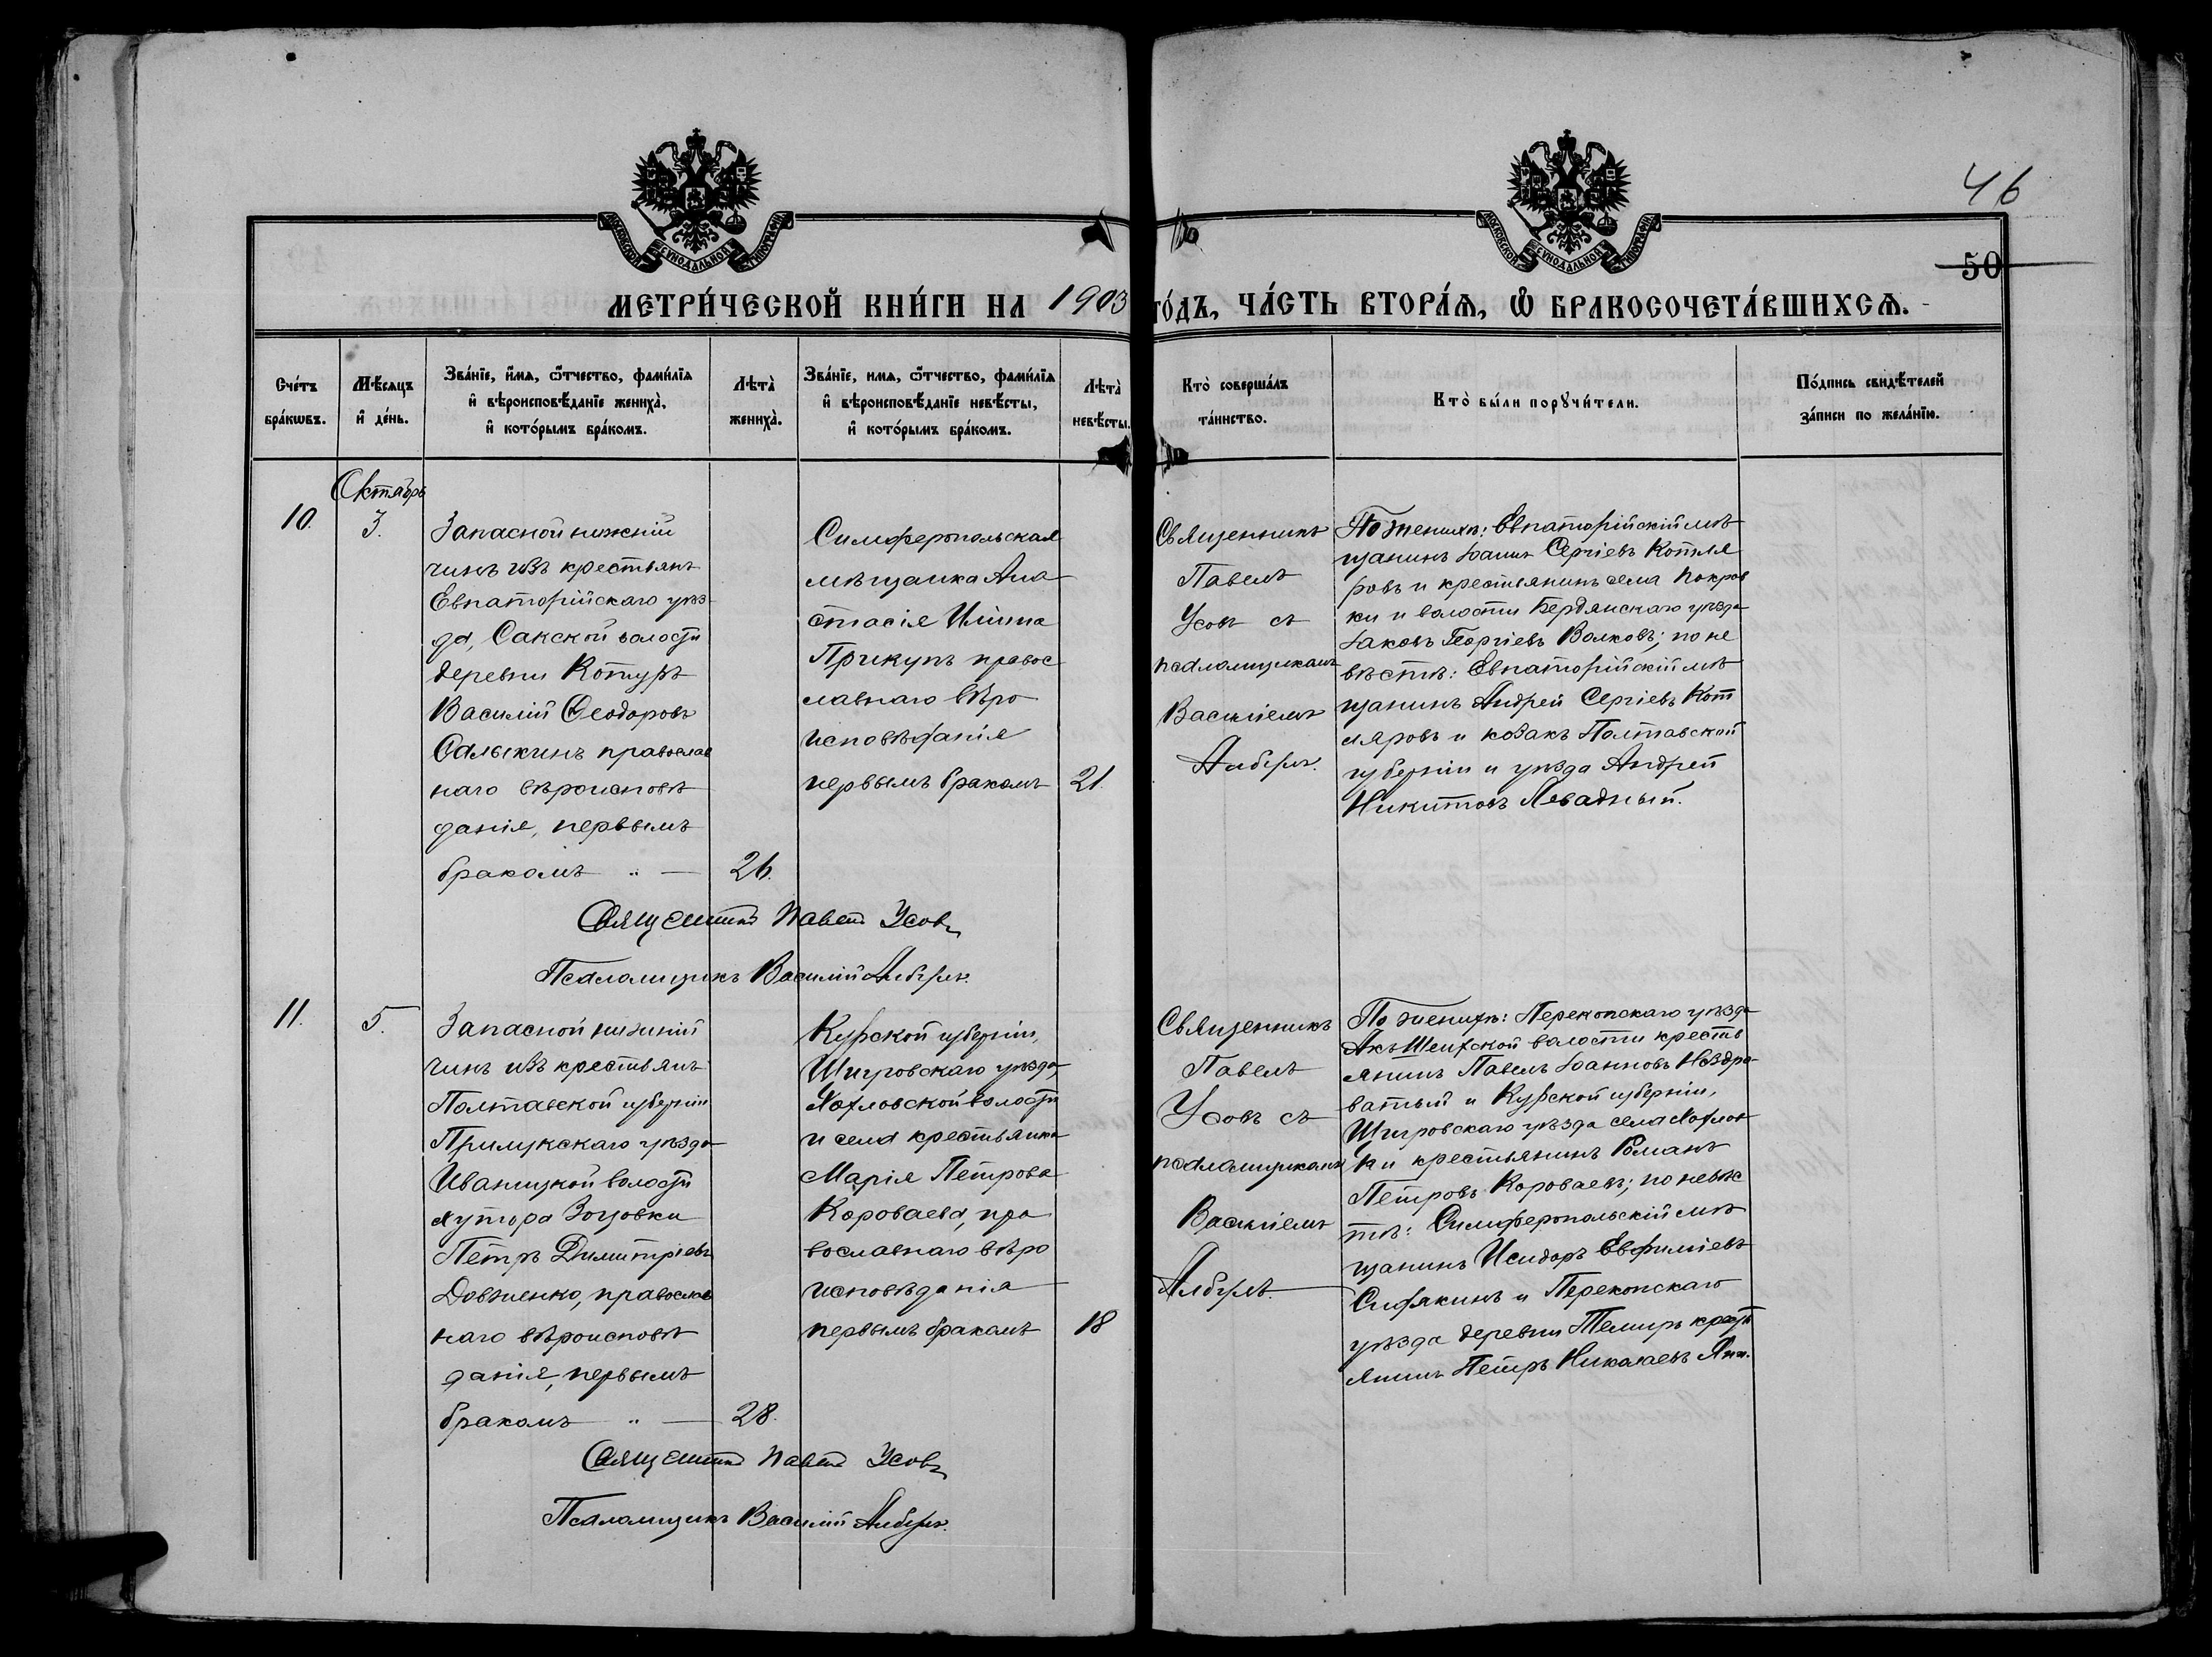 46
50
МОСКОВСКОЙ СѴНОДАЛЬНОЙ ТИПОГРАФІИ
МОСКОВСКОЙ СѴНОДАЛЬНОЙ ТИПОГРАФІИ
МЕТРИ́ЧЕСКОЙ КНИ́ГИ НА 1903 ГО́ДЪ, ЧА́СТЬ ВТОРА́Ѧ, Ѡ БРАКОСОЧЕТА́ВШИХСѦ.
Сче́тъ
бра́кѡвъ.
Мѣ́сяцъ
и де́нь.
Зва́нїе, и́мѧ, ѻ҆́тчество, фами́лїѧ
и҆ вѣроисповѣ́данїе женихà,
и҆ кото́рымъ бра́комъ.
Лѣта̀
жениха̀.
Зва́нїе, имѧ, ѻ҆́тчество, фами́лїѧ
и҆ вѣроисповѣ́данїе невѣ́сты,
и҆ кото́рымъ бра́комъ.
Лѣта̀
невѣ́сты.
Кто̀ совершáлъ
та́инство.
Кто̀ бы́ли порꙋчи́тели.
По́дпись свидѣ́телей
за́писи по жела́нїю.
Октябрь
10.
3.
Запасной нижній
чинъ изъ крестьянъ
Евпаторійскаго уѣз-
да, Сакской волости
деревни Котуръ
Василій Ѳеодоровъ
Салыкинъ православ
наго вѣроисповѣ
данія, первымъ
бракомъ " —
26.
Симферопольская
мѣщанка Ана
стасія Ильина
Прикупъ правос
лавнаго вѣро
исповѣданія
первымъ бракомъ
21.
Священникъ
Павелъ
Усовъ съ
псаломщикомъ
Василіемъ
По женихѣ: Евпаторійскій мѣ
щанинъ Іоаннъ Сергіевъ Котля
ровъ и крестьянинъ села Покров
ки и волости Бердянскаго уѣзда
Іаковъ Георгіевъ Волковъ; по не
вѣстѣ: Евпаторійскій мѣ
щанинъ Андрей Сергіевъ Кот
ляровъ и козакъ Полтавской
губерніи и уѣзда Андрей
Никитовъ Левадный.
Священникъ Павелъ Усовъ
Псаломщикъ Василій
11.
5.
Запасной нижній
чинъ изъ крестьянъ
Полтавской губерніи
Прилукскаго уѣзда
Иваницкой волости
хутора
Петръ Димитріевъ
Довженко, православ
наго вѣроисповѣ
данія, первымъ
бракомъ " —
28.
Курской губерніи,
Щигровскаго уѣзда,
Хохловской волости
и села крестьянка
Марія Петрова
Короваева, пра
вославнаго вѣро
исповѣданія
первымъ бракомъ
18
Священникъ
Павелъ
Усовъ съ
псаломщикомъ
Василіемъ
По женихѣ: Перекопскаго уѣзда
Акъ-Шеихской волости кресть
янинъ Павелъ Іоанновъ Ноздре-
ватый и Курской губерніи,
Щигровскаго уѣзда села Хохлов
ки крестьянинъ Романъ
Петровъ Короваевъ; по невѣс
тѣ: Симферопольскій мѣ
щанинъ Исидоръ Евфиміевъ
и Перекопскаго
уѣзда деревни Темиръ кресть
янинъ Петръ Николаевъ
Священникъ Павелъ Усовъ
Псаломщикъ Василій